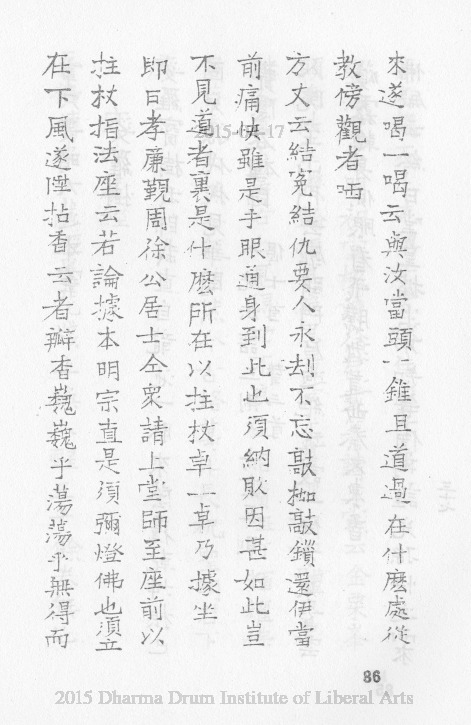 來遂喝一喝云與汝當頭一錐且道過在什麼處從
教傍觀者哂
方丈云結冤結仇要人永刦不忘敲枷敲鎖還伊當
前痛快雖是手眼通身到此也須納敗因甚如此豈
不見道者裏是什麼所在以拄杖卓一卓乃據坐
即日孝廉覲周徐公居士仝衆請上堂師至座前以
拄杖指法座云若論據本明宗直是須彌燈佛也須立
在下風遂陞拈香云者瓣香巍巍乎蕩蕩乎無得而
2015-06-17
86
2015 Dharma Drum Institute of Liberal Arts